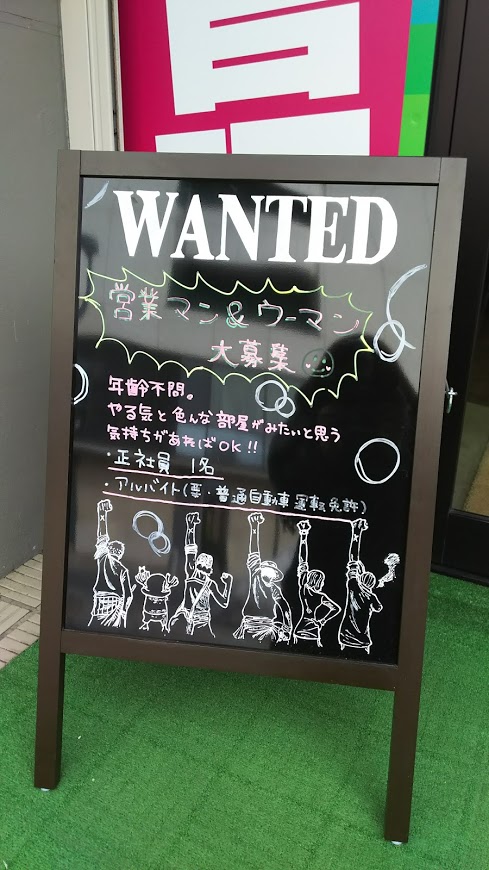 WANTED
営業マン&ウーマン
大募集
年齢不問。
やる気と色んな部屋がみたいと思う
気持ちがあればOK!!
・正社員 1名
・アルバイト(要・普通自動車運転免許)